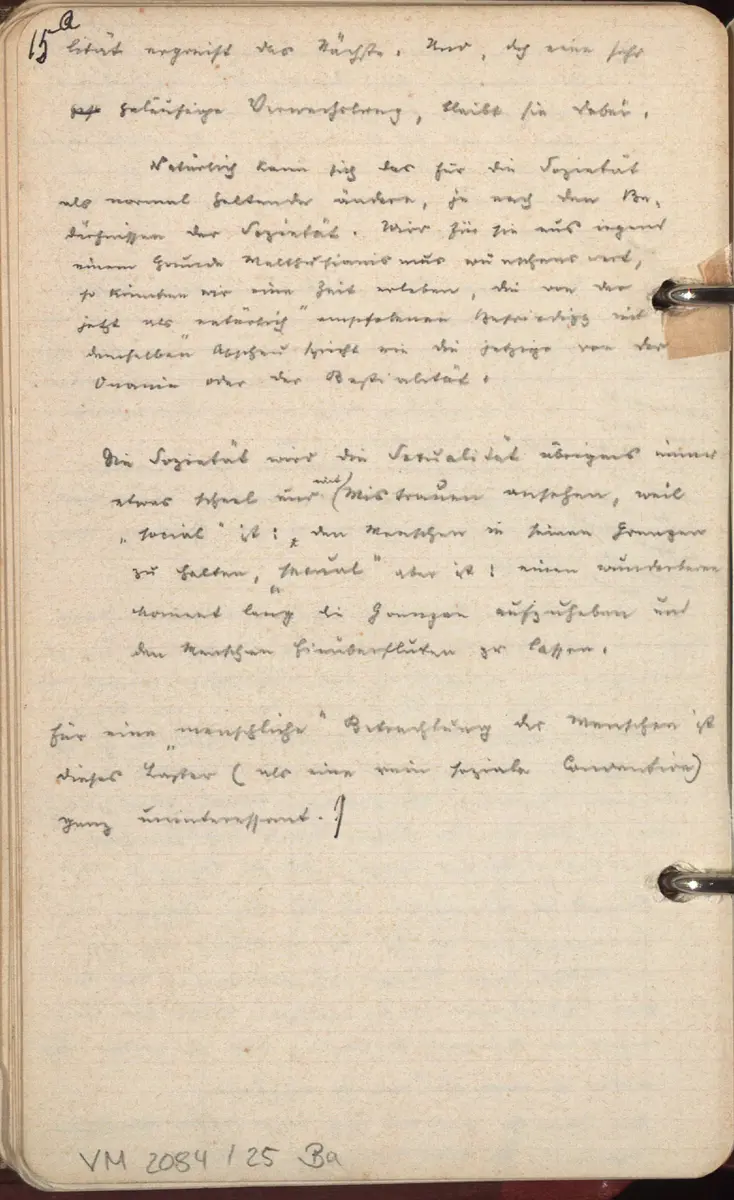 15a
lität ergreift das Nächste. Und, doch eine sehr
geläufige Verwechslung, bleibt sie dabei.
Natürlich kann sich das für die Sozietät
als normal Geltende ändern, je nach den Be-
dürfnissen der Sozietät. Wird für sie aus irgend
einem Grunde Malthusianismus wünschenswert,
so könnten wir eine Zeit erleben, die von der
jetzt als „natürlich" empfohlenen Befriedigg mit
demselben Abscheu spricht wie die jetzige von der
Onanie oder der Bestialität.
Die Sozietät wird die Sexualität übrigens immer
etwas scheel und mit Mistrauen ansehen, weil
„social" ist: den Menschen in seinen Grenzen
zu halten, „sexual" aber ist: einen wunderbaren
Moment lang die Grenzen aufzuheben und
den Menschen hinüberfluten zu lassen.
Für eine „menschliche" Betrachtung des Menschen ist
dieses Laster (als eine rein soziale Convention)
ganz uninteressant.
VM 2084 / 25 Ba